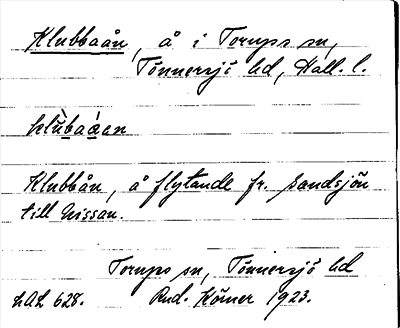 Klubbaån, å i Torups sn,
Tönnersjö hd, Hall. l.
klùbaáen
Klubbån, å flytande fr. Sandsjön
till Nissan.
Torups sn, Tönnersjö hd
LAL 628. Rud. Körner 1923.